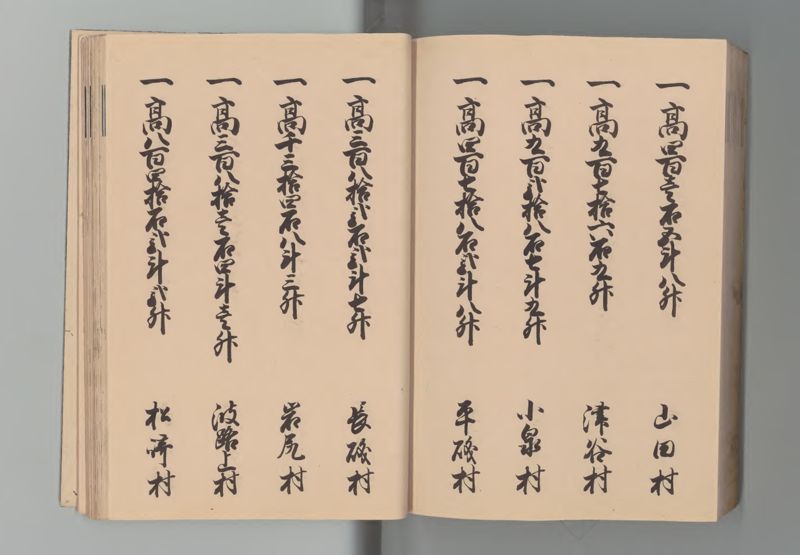 一高四百壱石五斗八升 山田村
一高九百七拾六石九升 津谷村
一高九百弐拾八石七斗九升 小泉村
一高四百七拾八石弐斗八升 平磯村
一高三百八拾弐石弐斗七升 長磯村
一高千三拾四石八斗三升 岩尻村
一高三百八拾壱石四斗壱升 波路上村
一高八百四拾石弐斗弐升 松崎村